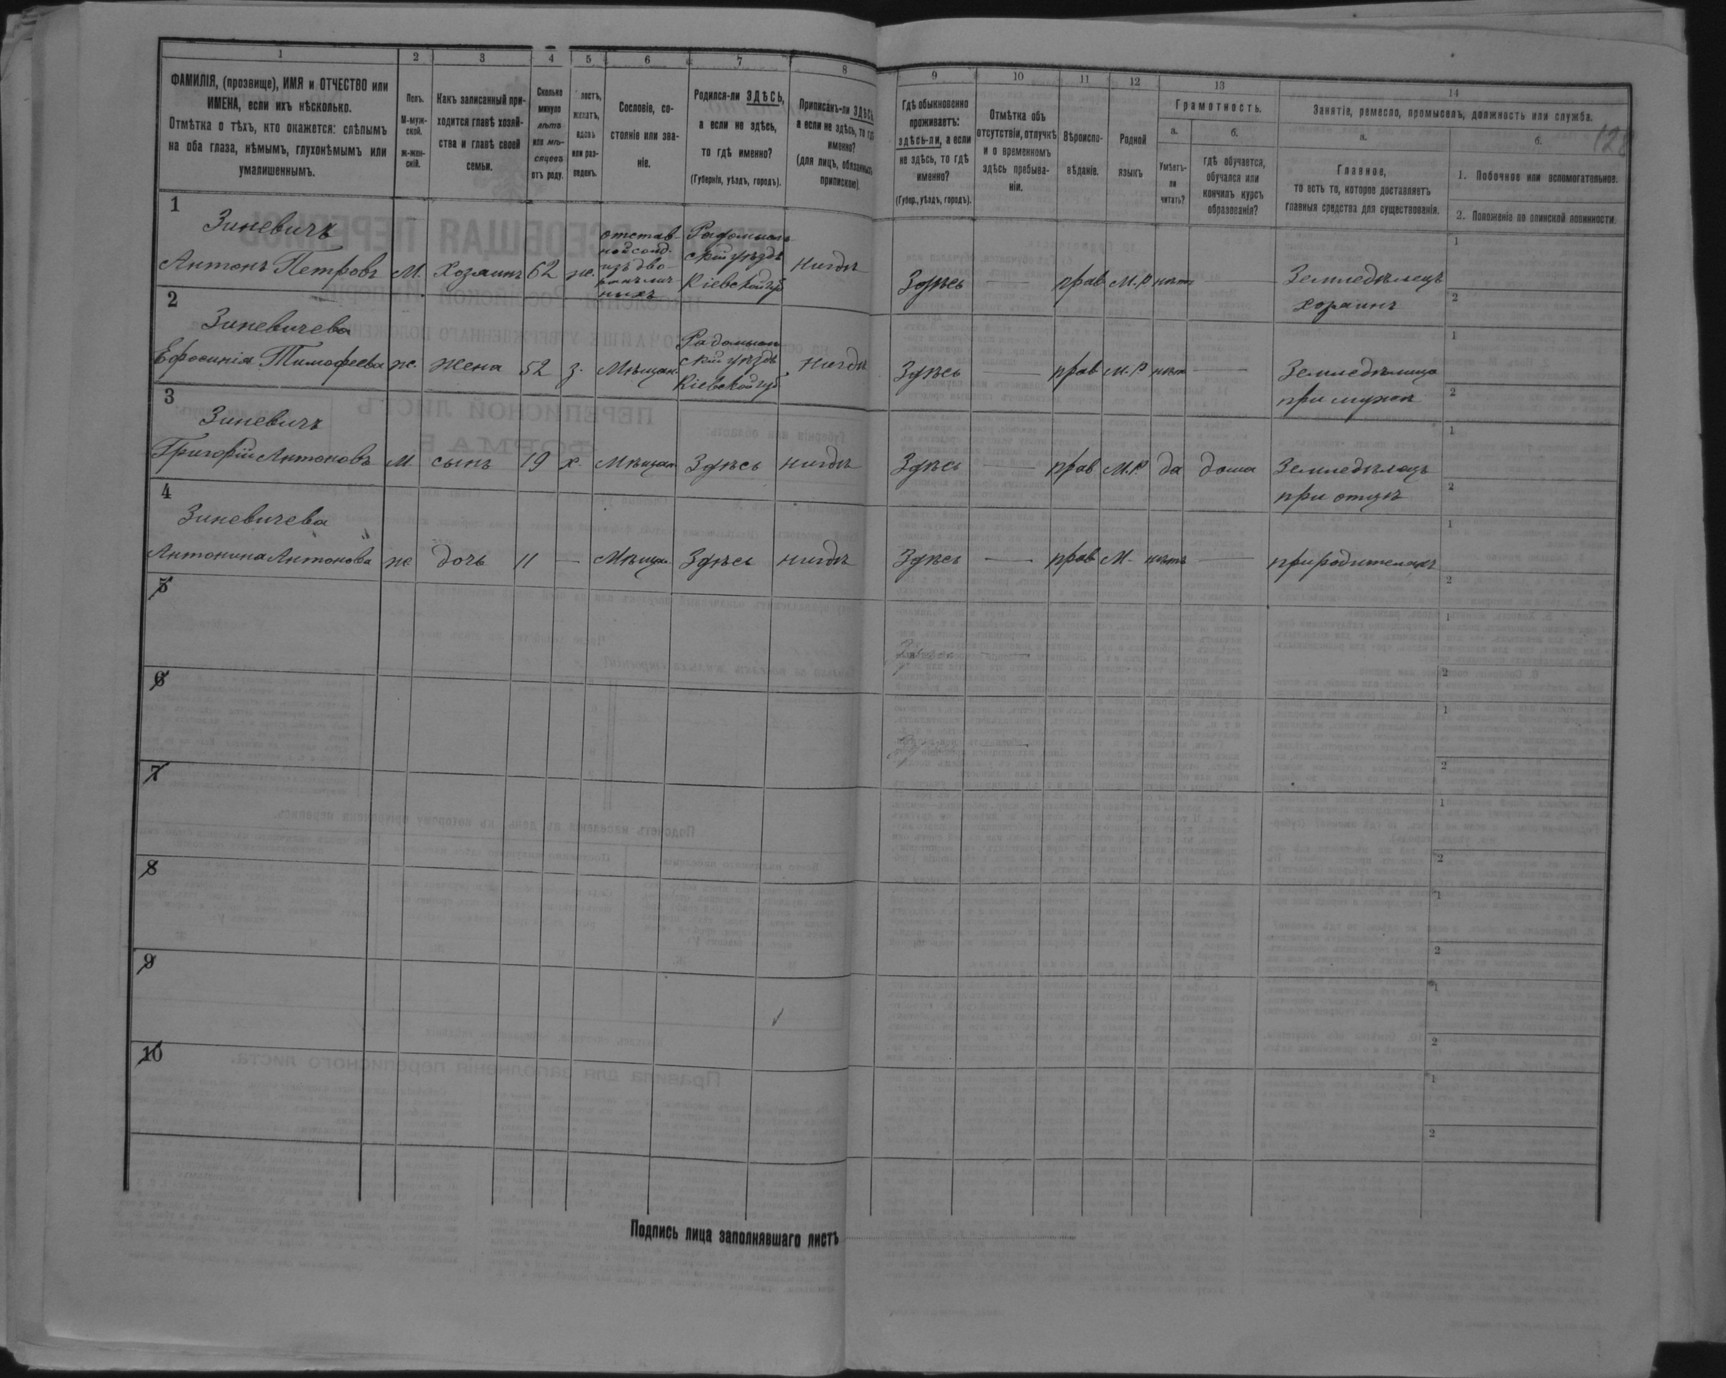 1 2 3 4 5 6 7 8 9 10 11 12 13 14
ФАМИЛІЯ, (прозвище), ИМЯ и ОТЧЕСТВО или
ИМЕНА, если ихъ нѣсколько.
Отмѣтка о тѣхъ, кто окажется: слѣпымъ
на оба глаза, нѣмымъ, глухонѣмымъ или
умалишеннымъ.
Полъ.
М-муж-
ской.
ж-жен-
скій.
Какъ записанный при-
ходится главѣ хозяй-
ства и главѣ своей
семьи.
Сколько
минуло
лѣтъ
или мѣ-
сяцевъ
отъ роду.
лостъ,
женатъ,
вдовъ
или раз-
веденъ.
Сословіе, со-
стояніе или зва-
ніе.
Родился-ли ЗДѢСЬ,
а если не здѣсь,
то гдѣ именно?
(Губернія, уѣздъ, городъ).
Приписанъ-ли ЗДѢСЬ,
а если не здѣсь, то гдѣ
именно?
(для лицъ, обязанныхъ
припискою)
Гдѣ обыкновенно
проживаетъ:
здѣсь-ли, а если
не здѣсь, то гдѣ
именно?
(Губер., уѣздъ, городъ).
Отмѣтка объ
отсутствіи, отлучкѣ
и о временномъ
здѣсь пребыва-
ніи.
Вѣроиспо-
вѣданіе.
Родной
языкъ
Грамотность.
а. б.
Умѣетъ-
ли
читать?
гдѣ обучается,
обучался или
кончилъ курсъ
образованія?
Занятіе, ремесло, промыселъ, должность или служба.
а. б.
Главное,
то есть то, которое доставляетъ
главныя средства для существованія.
1. Побочное или вспомогательное.
2. Положеніе по воинской повинности.
128
1
Зиневичъ
Антонъ Петровъ М. Хозяинъ 62 ж.
Радомысль
скій уѣздъ
Кіевской губ
нигдѣ Здѣсь — прав М.Р нѣт —
Земледѣлецъ
хозяинъ
1
2
2
Зиневичева
Ефросинія Тимофеева ж. жена 52 з. Мѣщан.
Радомысль
скій уѣздъ
Кіевской губ
нигдѣ Здѣсь — прав М.Р нѣт —
Земледѣлица
при мужѣ
1
2
3
Зиневичъ
Григорій Антоновъ М. сынъ 19 х. Мѣщан Здѣсь нигдѣ Здѣсь — прав М.Р да дома Земледѣлецъ
при отцѣ
1
2
4
Зиневичева
Антонина Антонова ж. дочь 11 — Мѣщан Здѣсь нигдѣ Здѣсь — прав М. нѣтъ — при родителяхъ
1
2
5
1
2
6
1
2
7
1
2
8
1
2
9
1
2
10
1
2
Подпись лица заполнявшаго листъ